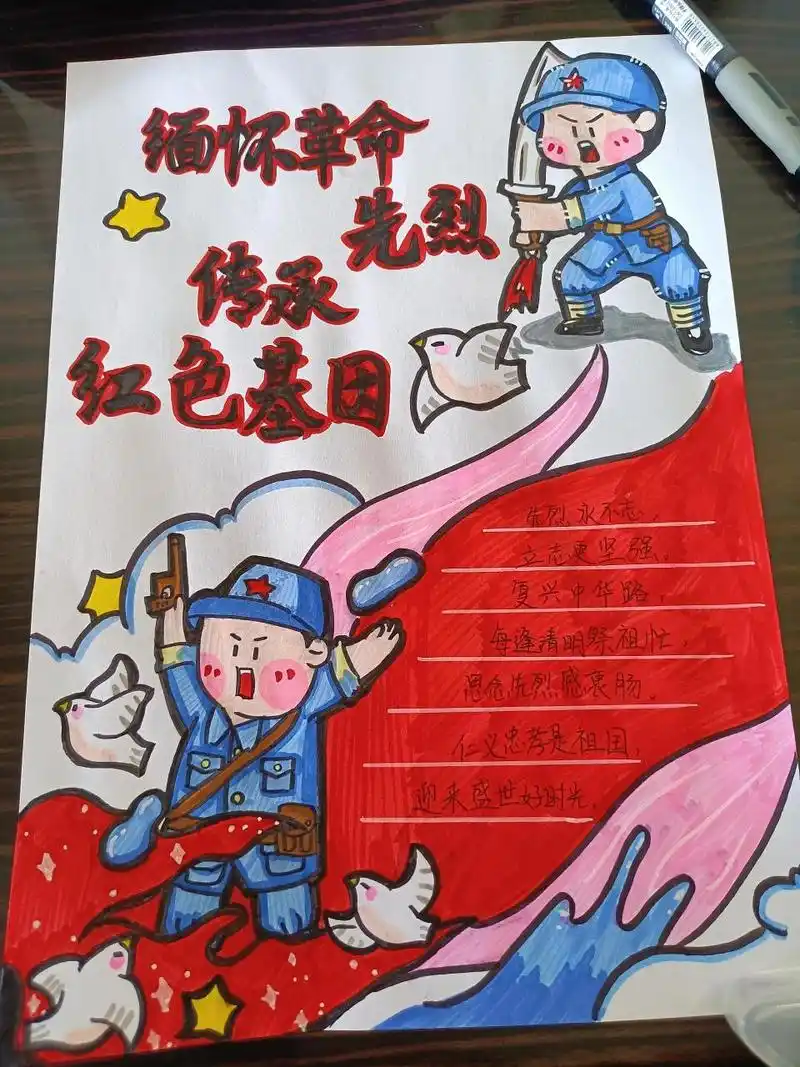 缅怀革命
先烈
传承
红色基因
先烈永不忘，
立志更坚强，
复兴中华路，
每逢清明祭祖忙，
思念先烈感衷肠，
仁义忠孝是祖国，
迎来盛世好时光，